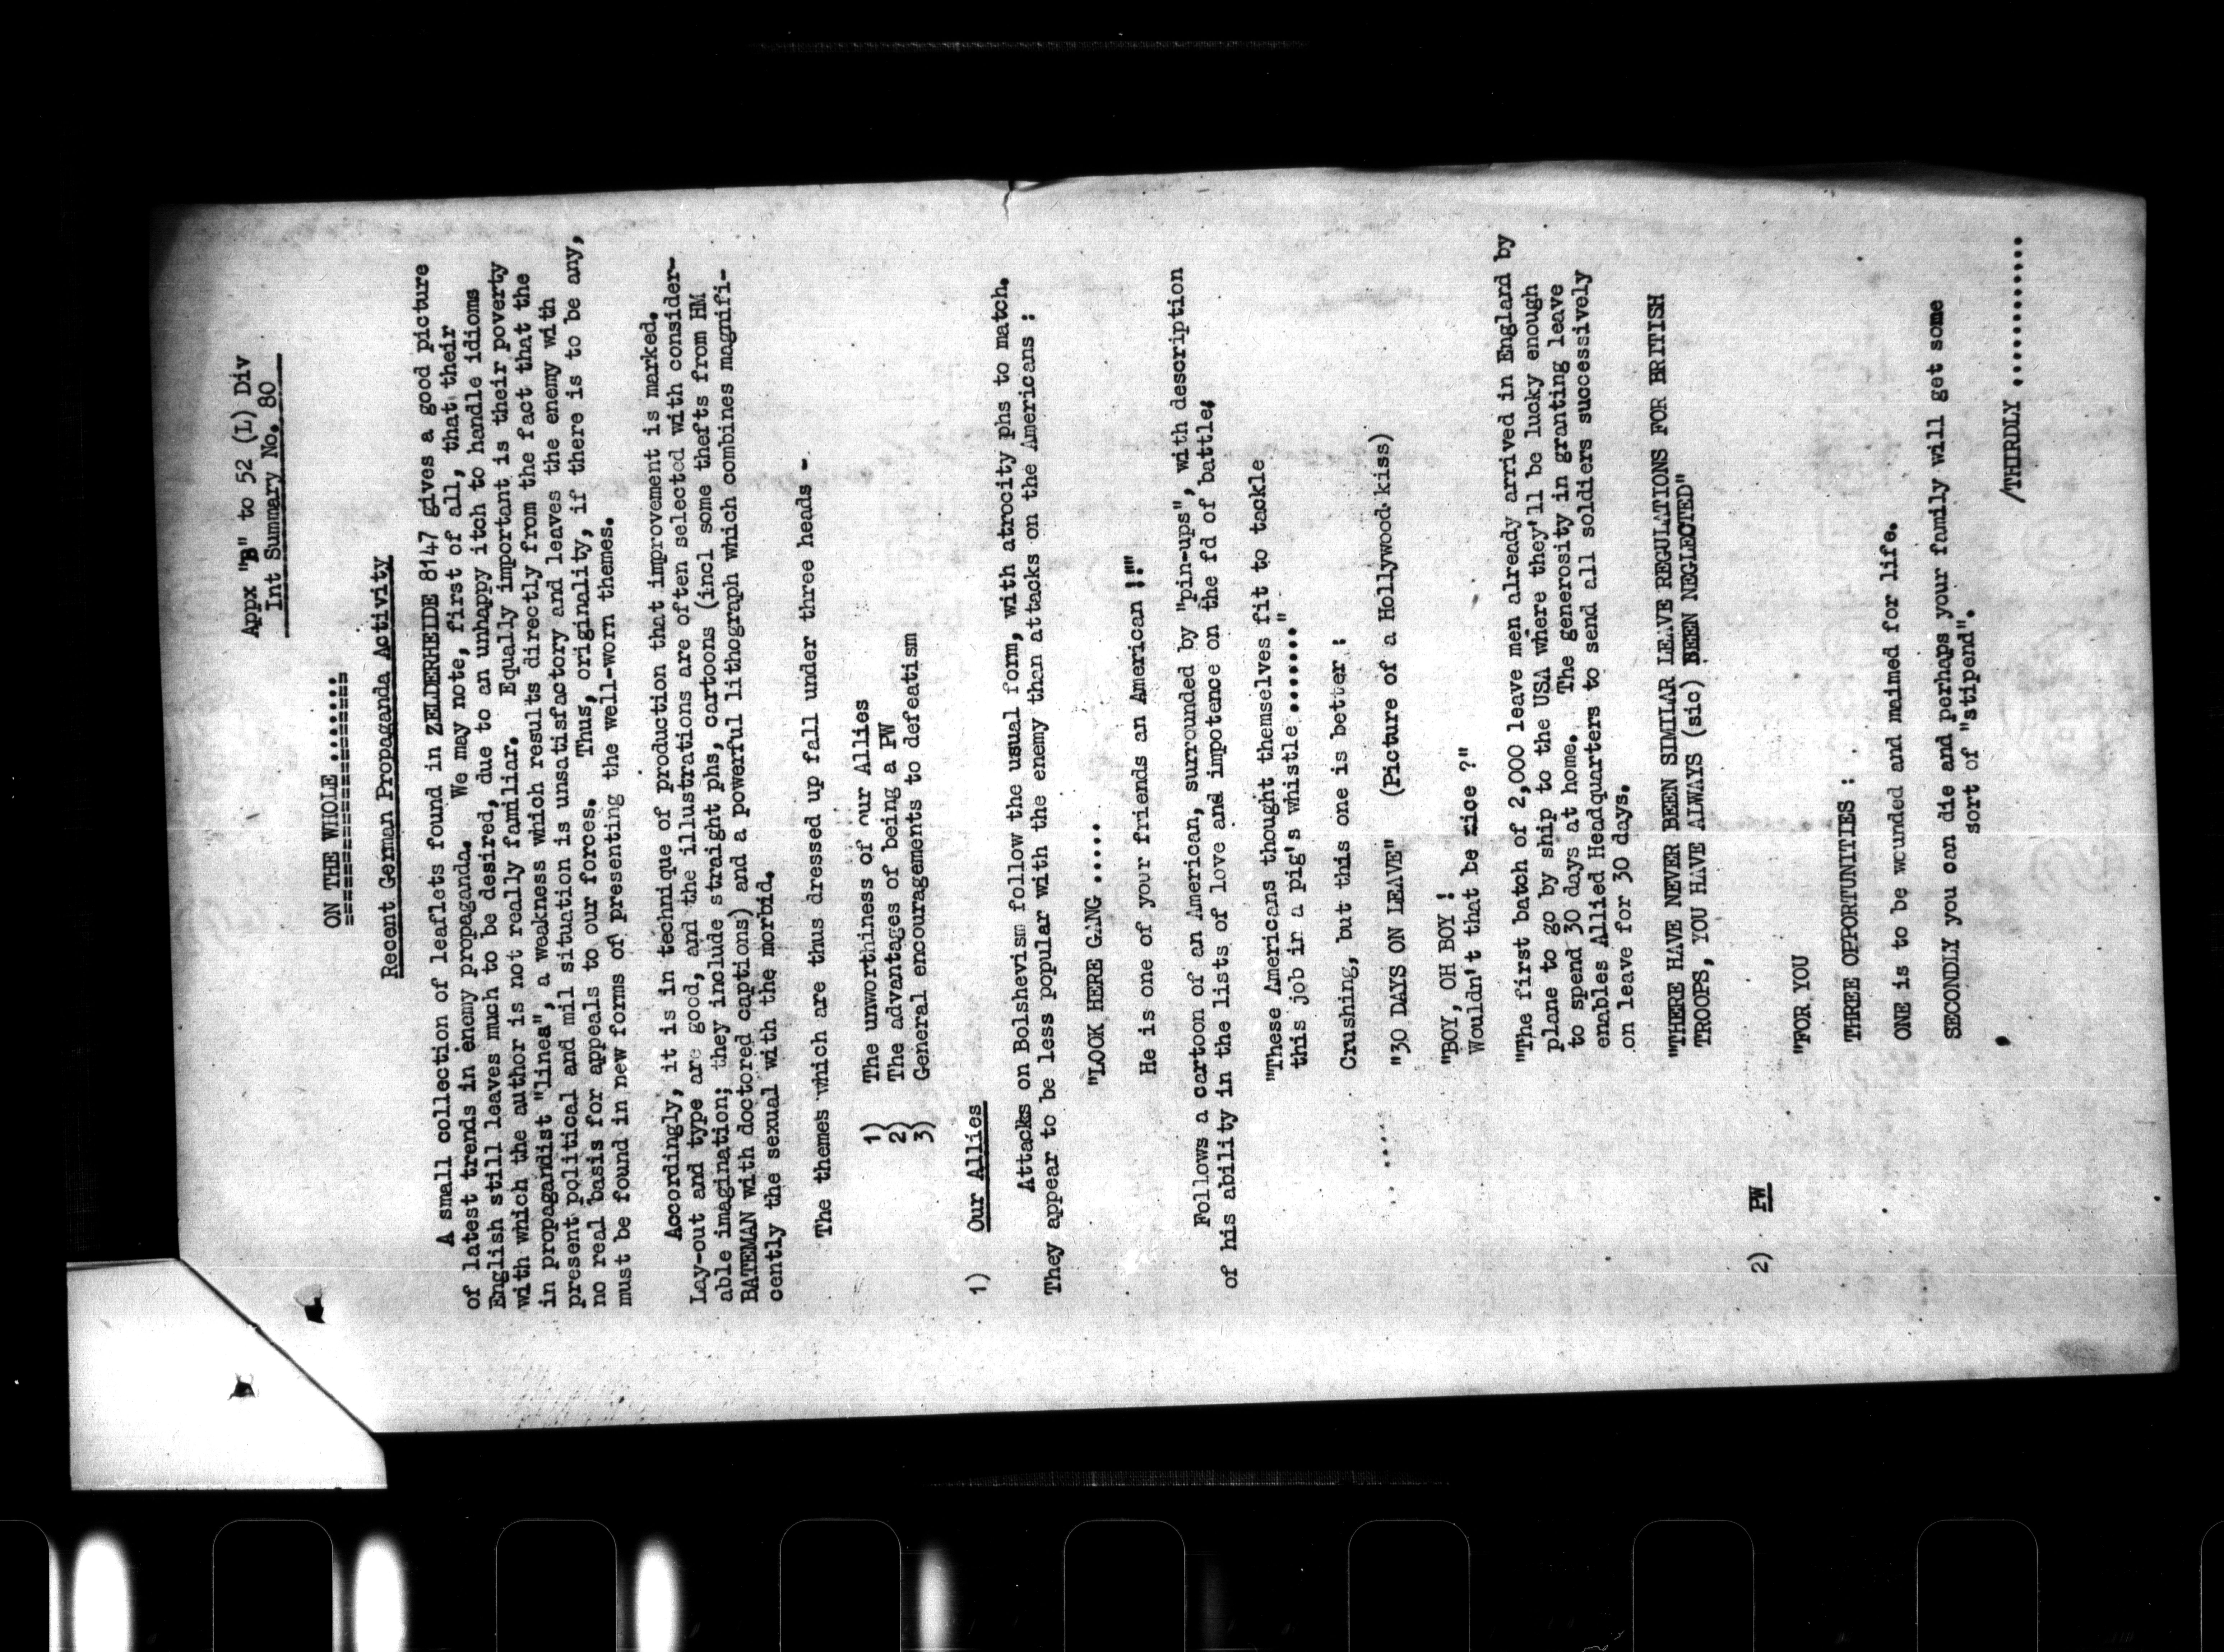 Appx "B" to 52 (L) Div
Int Summary No. 80
ON THE WHOLE .......
Recent German Propaganda Activity
A small collection of leaflets found in ZELDERHEIDE 8147 gives a good picture
of latest trends in enemy propaganda. We may note, first of all, that their
English still leaves much to be desired, due to an unhappy itch to handle idioms
with which the author is not really familiar. Equally important is their poverty
in propagandist "lines", a weakness which results directly from the fact that the
present political and mil situation is unsatisfactory and leaves the enemy with
no real basis for appeals to our forces. Thus, originality, if there is to be any,
must be found in new forms of presenting the well-worn themes.
Accordingly, it is in technique of production that improvement is marked.
Lay-out and type are good, and the illustrations are often selected with consider-
able imagination; they include straight phs, cartoons (incl some thefts from HM
BATEMAN with doctored captions) and a powerful lithograph which combines magnifi-
cently the sexual with the morbid.
The themes which are thus dressed up fall under three heads -
1) The unworthiness of our Allies
2) The advantages of being a PW
3) General encouragements to defeatism
1) Our Allies
Attacks on Bolshevism follow the usual form, with atrocity phs to match.
They appear to be less popular with the enemy than attacks on the Americans :
"LOOK HERE GANG .....
He is one of your friends an American !!"
Follows a cartoon of an American, surrounded by "pin-ups", with description
of his ability in the lists of love and impotence on the fd of battle;
"These Americans thought themselves fit to tackle
this job in a pig's whistle ......."
Crushing, but this one is better :
"30 DAYS ON LEAVE" (Picture of a Hollywood kiss)
"BOY, OH BOY !
Wouldn't that be nice ?"
"The first batch of 2,000 leave men already arrived in England by
plane to go by ship to the USA where they'll be lucky enough
to spend 30 days at home. The generosity in granting leave
enables Allied Headquarters to send all soldiers successively
on leave for 30 days.
"THERE HAVE NEVER BEEN SIMILAR LEAVE REGULATIONS FOR BRITISH
TROOPS, YOU HAVE ALWAYS (sic) BEEN NEGLECTED"
2) PW
"FOR YOU
THREE OPPORTUNITIES :
ONE is to be wounded and maimed for life.
SECONDLY you can die and perhaps your family will get some
sort of "stipend".
/THIRDLY ...........